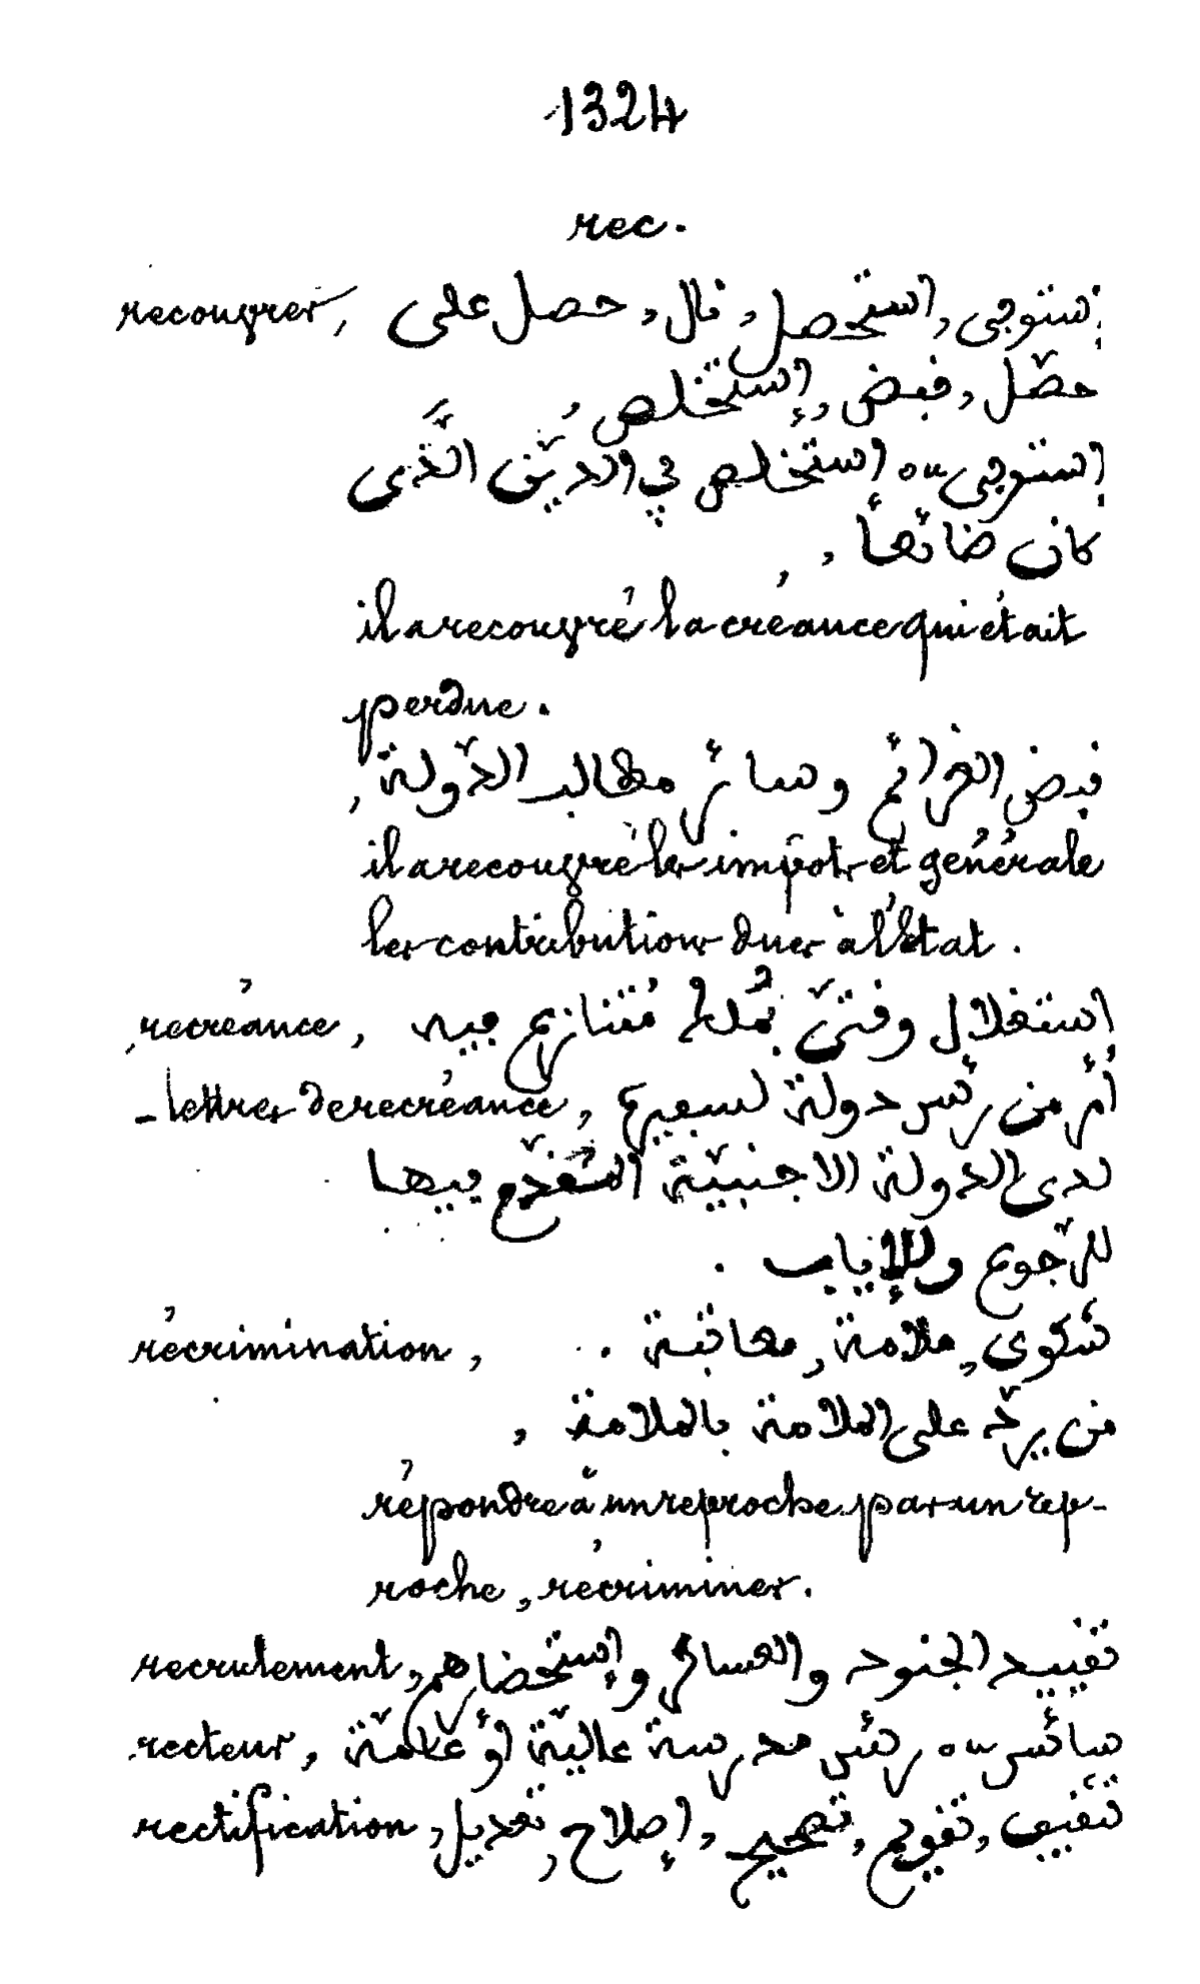 1324
rec.
recouvrer, إستوفى, استحصل, نال, حصل على
حصّل, قبض, إستخلص,
إستوفى ou استخلص في الديّن الّذى
كان ضائعاً,
il a recouvré la créance qui était
perdue.
قبض الغرائم وسائر مطالب الدّولة,
il a recouvré les impôts et générale
les contributions dues à l'État.
récréance, إستغلال وقتىّ بمُلك مُتنازع فيه
- lettres de recréance, أمر من رئس دولة لسفيره
لدى الدّولة الاجنبيّة المتقدّم فيها
للرّجوع وللإياب.
récrimination, شكوى, ملامة, معاتبة.
من يردّ على الملامة بالملامة,
répondre à un reproche par un rep-
roche, récriminer.
recrutement, تقييد الجنود والعساكر وإستحضارهم
recteur, سائس ou رئس مدرسة عاليّة أو عامّة
rectification, تثقيف, تقويم, تصحيح, إصلاح, تعديل